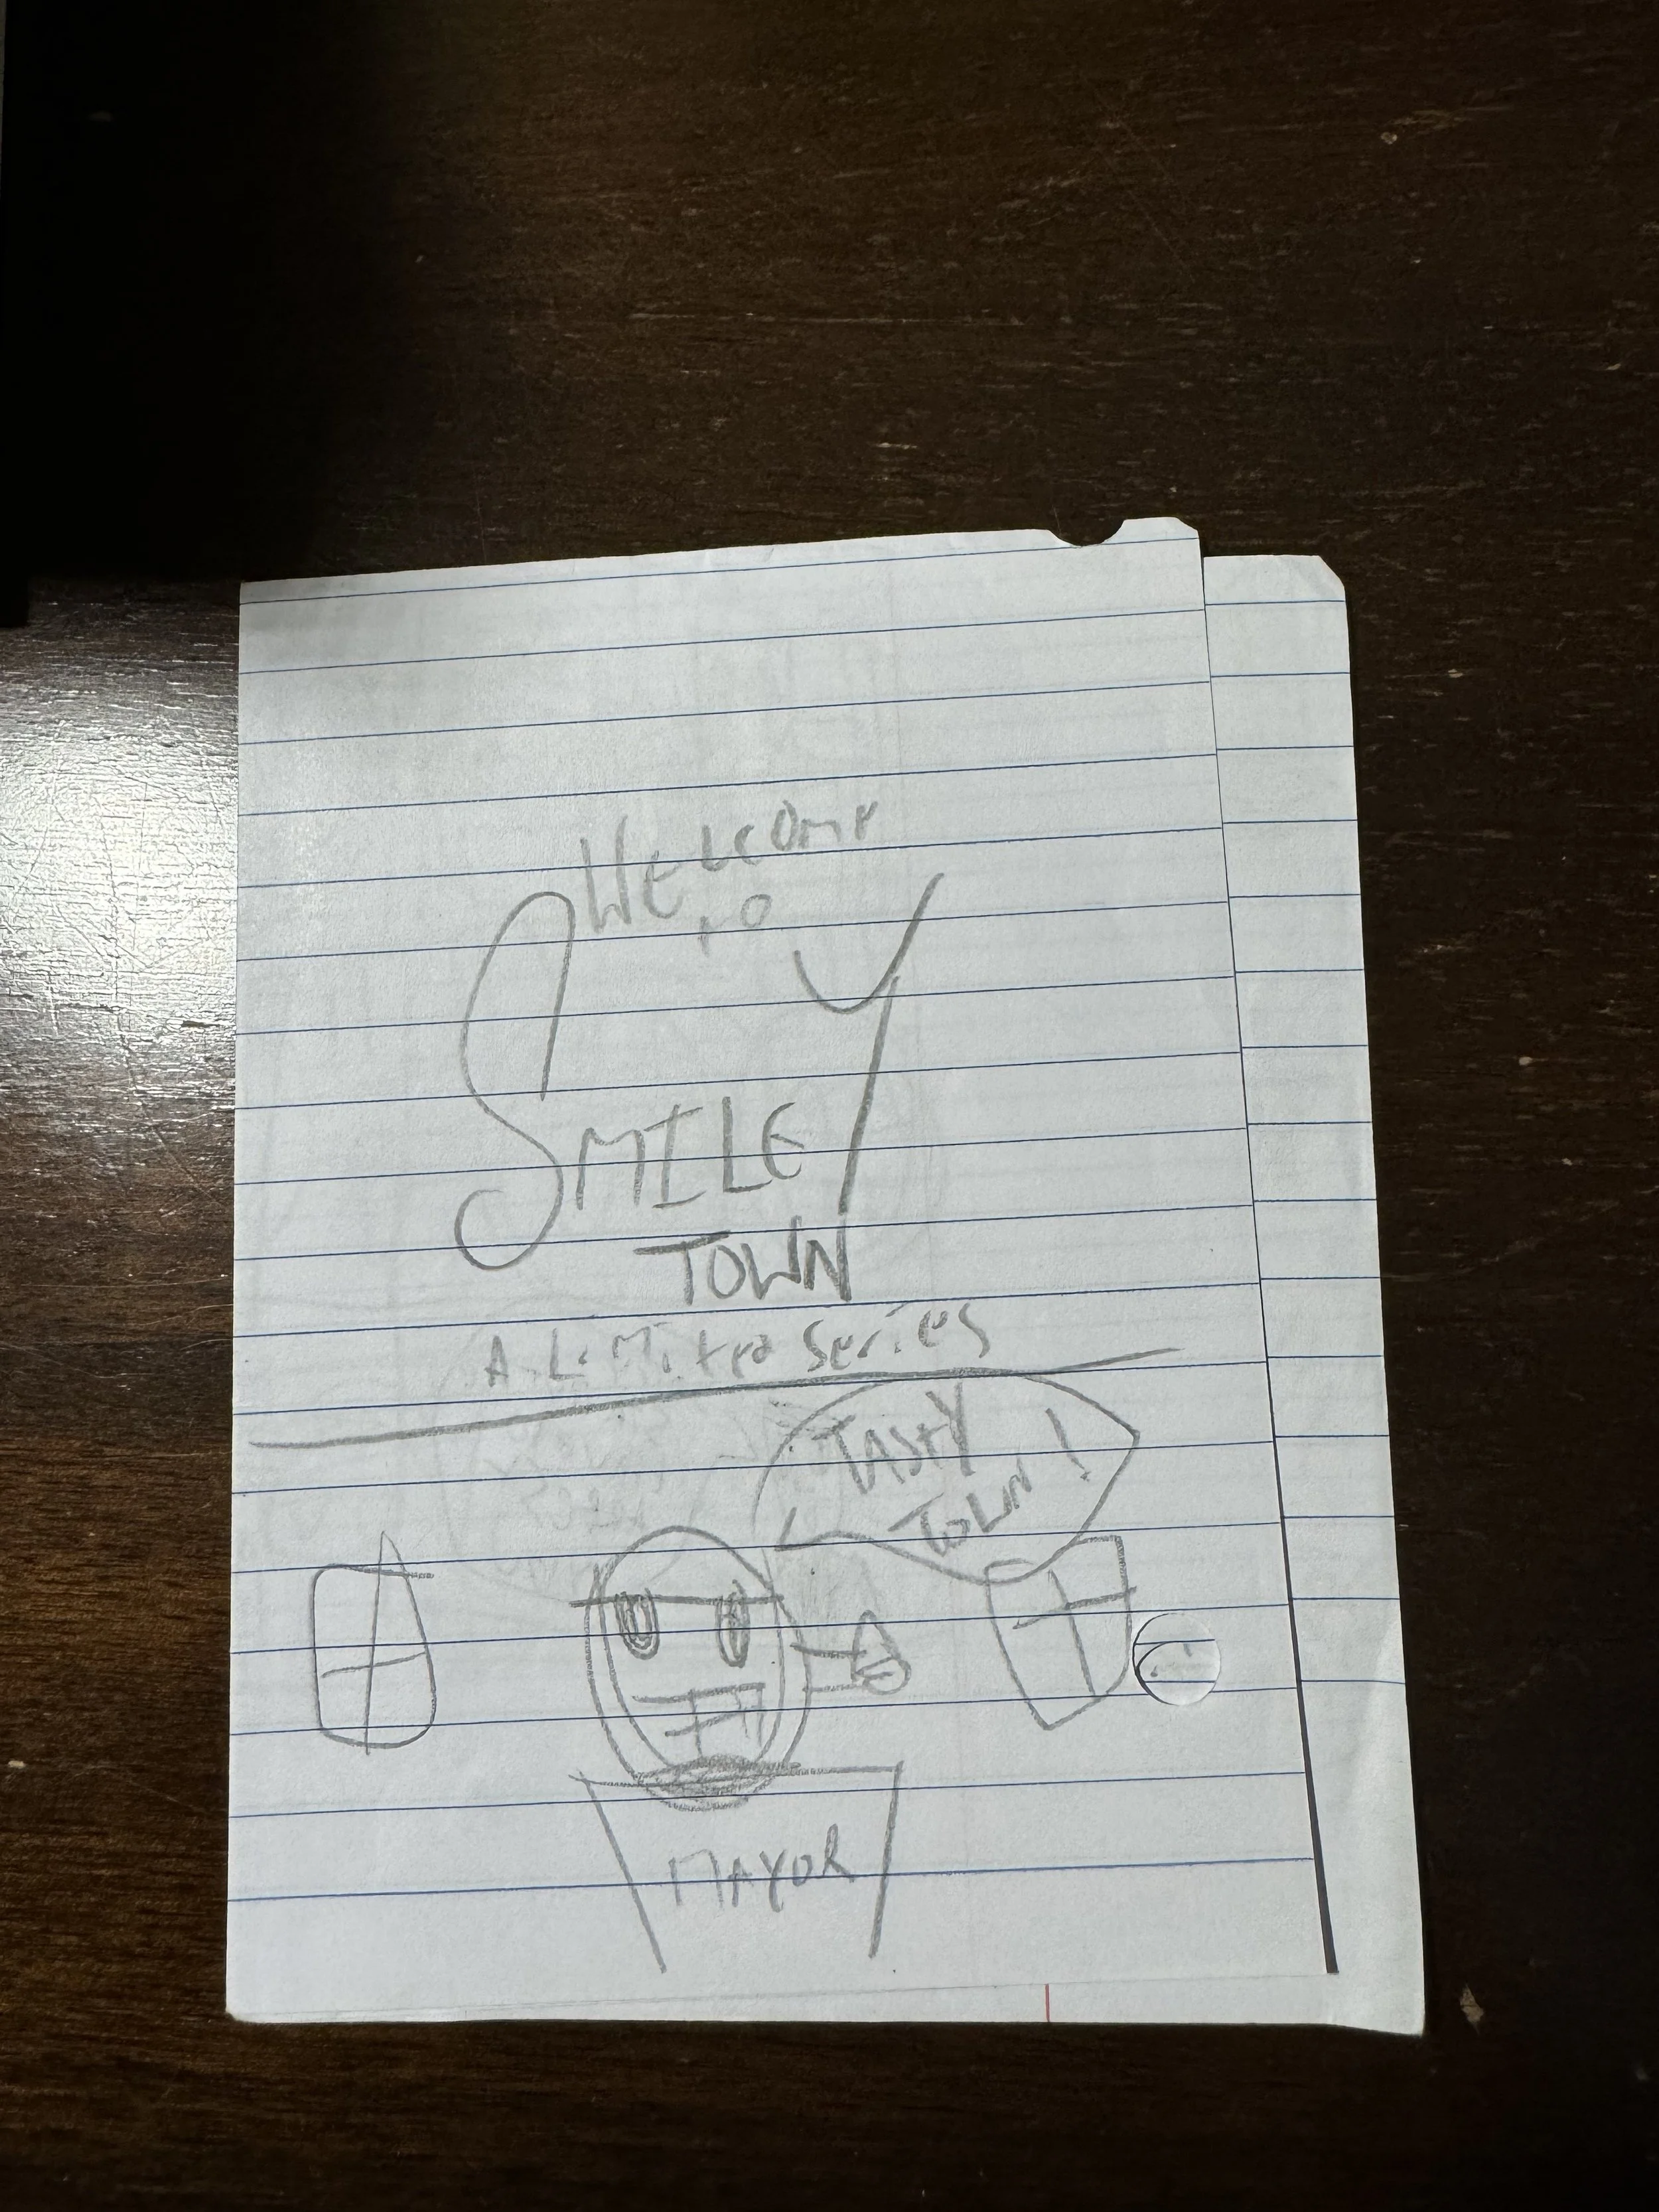 Welcome
to
SMILEY
TOWN
A LiMited Series
TASTY
TOWN!
MAYOR